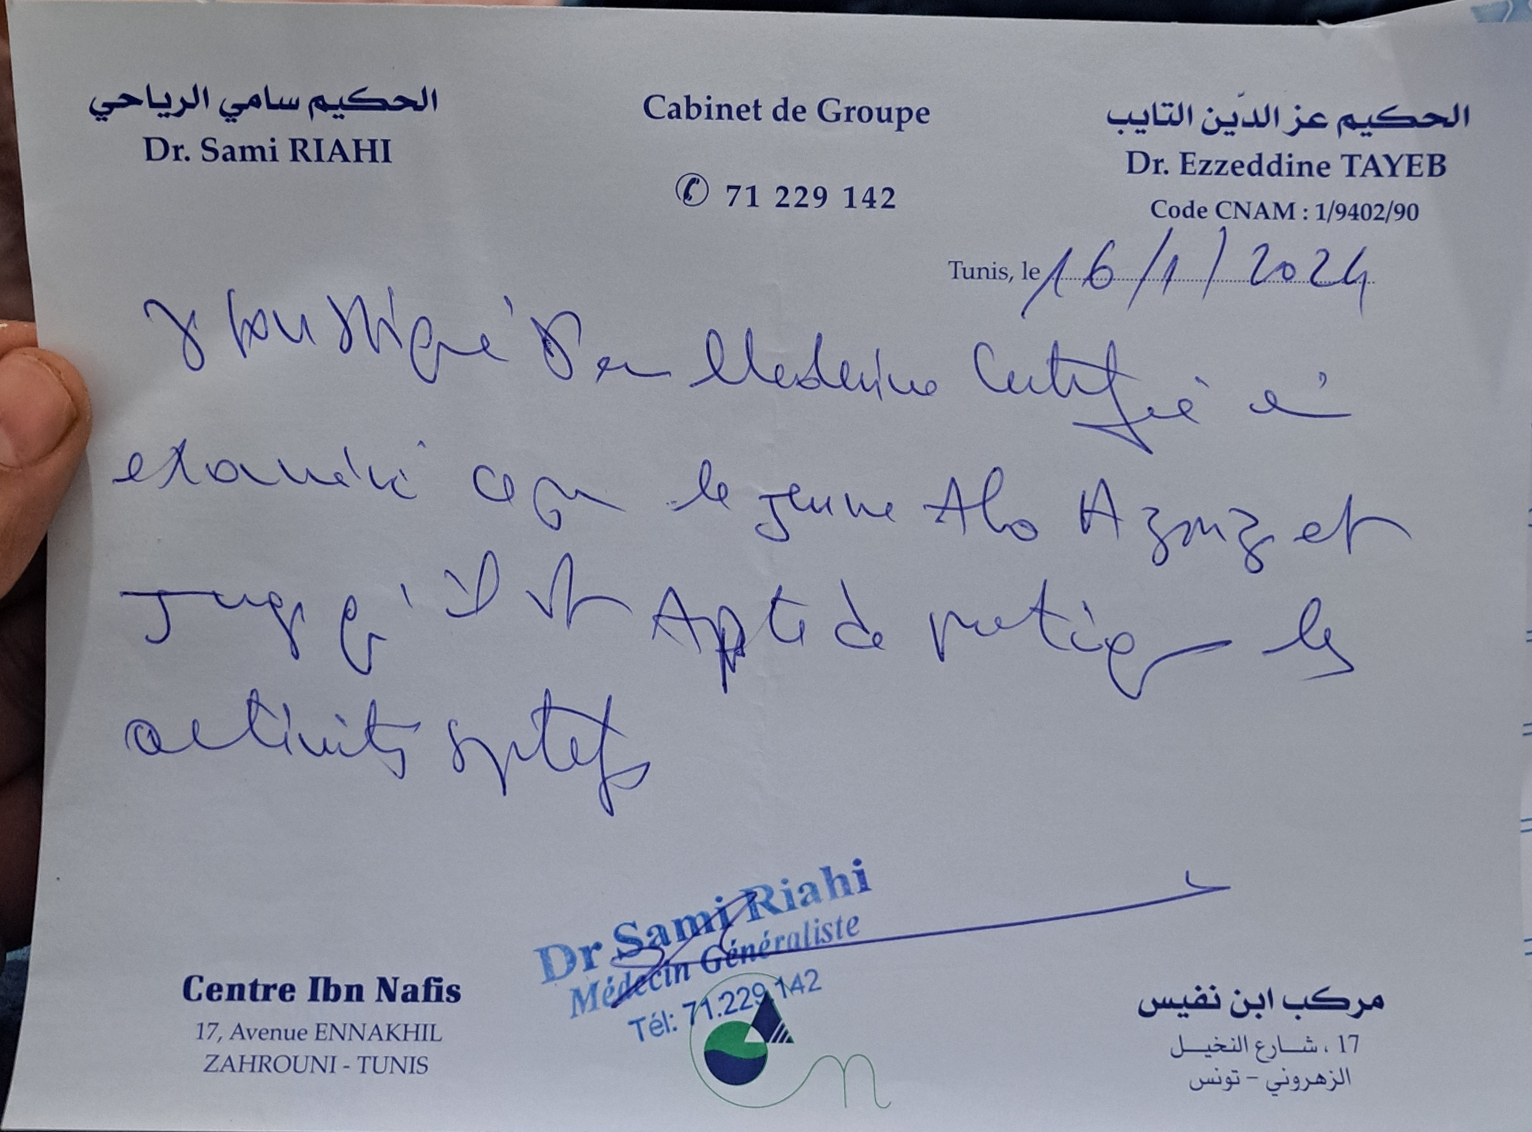 الحكيم سامي الرياحي
Dr. Sami RIAHI
Cabinet de Groupe
71 229 142
الحكيم عز الدّين التايب
Dr. Ezzeddine TAYEB
Code CNAM : 1/9402/90
Tunis, le 16/1/2024
soussigné en Medecine Certifie
examiné ce jour le jeune Azouz et
juge qu'il est Apte de pratiquer les
activités sportifs
Dr Sami Riahi
Médecin Généraliste
Tél: 71.229 142
Centre Ibn Nafis
17, Avenue ENNAKHIL
ZAHROUNI - TUNIS
مركب ابن نفيس
17 ، شارع النخيل
الزهروني - تونس